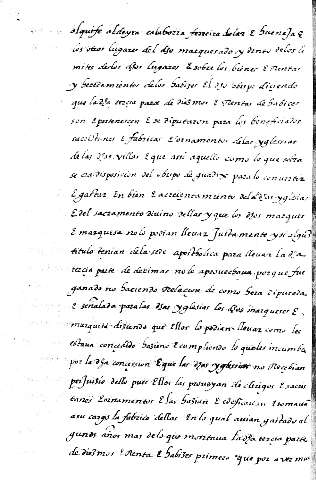 alquife aldeyra calahorra ferreira dolar E hueneja E
los otros lugares del dho marquesado y dentro de los li
mites de los dhos lugares E sobre los bienes E Rentas
y heredamientos de los habizes El dho obispo diziendo
que la dha tercia parte de diezmos E Rentas de habizes
son E pertenecen E se diputaron para los beneficiados
sacristanes E fabricas E ornamentos de las yglesias
de las dhas villas E que asi aquello como lo que sobra
a disposicion del obispo de guadix para lo convertir
E gastar En bien E acrecentamiento de las dhas yglesias
E del sacramento divino dellas y que los dhos marques
E marquesa no lo podian llevar Justamente y si algun
titulo tenian de la sede apostholica para llevar la dha
tercia parte de dezimas no le aprovechava porque fue
ganado no haziendo Relacion de como hera diputada
E señalada para las dhas yglesias los dhos marqueses E
marquesa diziendo que Ellos lo podian llevar como les
estava concedido E cumpliendo lo que les incumbia
por la dha concession E que las dhas yglesias no Recebian
perjuizio dello pues Ellos las proveyan de clerigos E sacris
tanes E ornamentos E las hazian E edificavan E tomavan
a su cargo la fabrica dellas En lo qual avian gastado al
gunos años mas de lo que montava la dha tercia parte
de diezmos E Renta E habizes primero que por aver mu